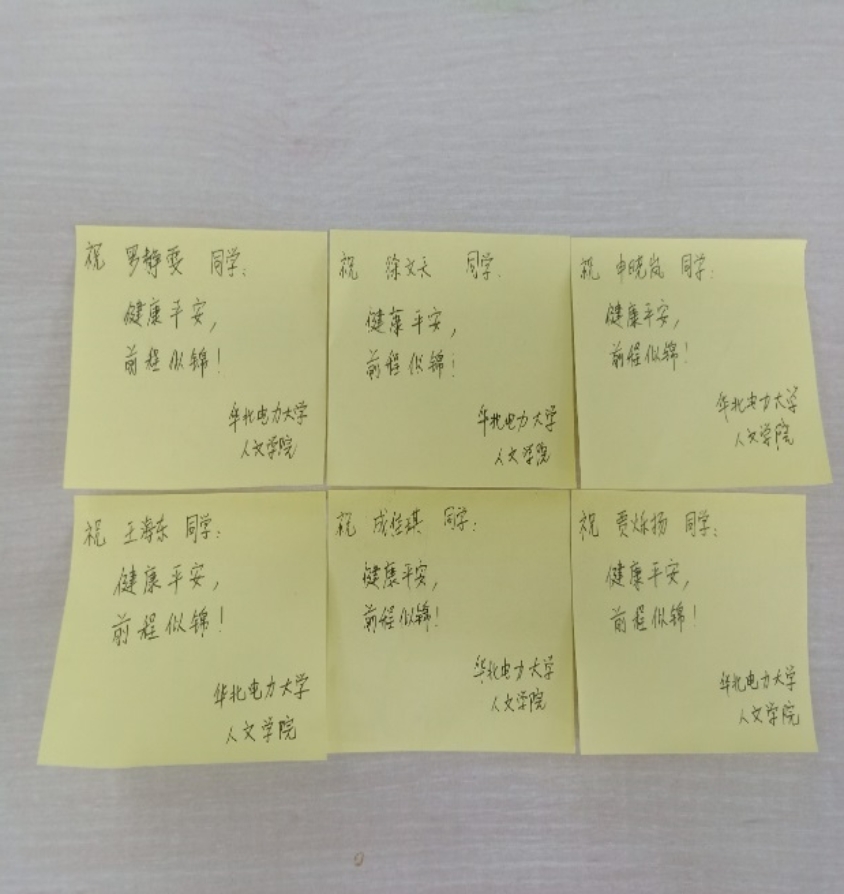 祝 罗静雯 同学:
健康平安,
前程似锦!
华北电力大学
人文学院
祝 徐文天 同学:
健康平安,
前程似锦!
华北电力大学
人文学院
祝 申晓岚 同学:
健康平安,
前程似锦!
华北电力大学
人文学院
祝 王海东 同学:
健康平安,
前程似锦!
华北电力大学
人文学院
祝 同学:
健康平安,
前程似锦!
华北电力大学
人文学院
祝 贾烁扬 同学:
健康平安,
前程似锦!
华北电力大学
人文学院